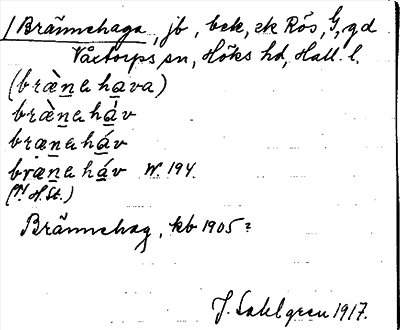 /Brännehaga, jb, bek, ek Rös, G, gd
Våxtorps sn, Höks hd, Hall. l.
(bræ̀ne hava)
bræ̀ne háv
bræne háv
bræne háv W. 194.
Brännehag, kb 1905?
J. Sahlgren 1917.